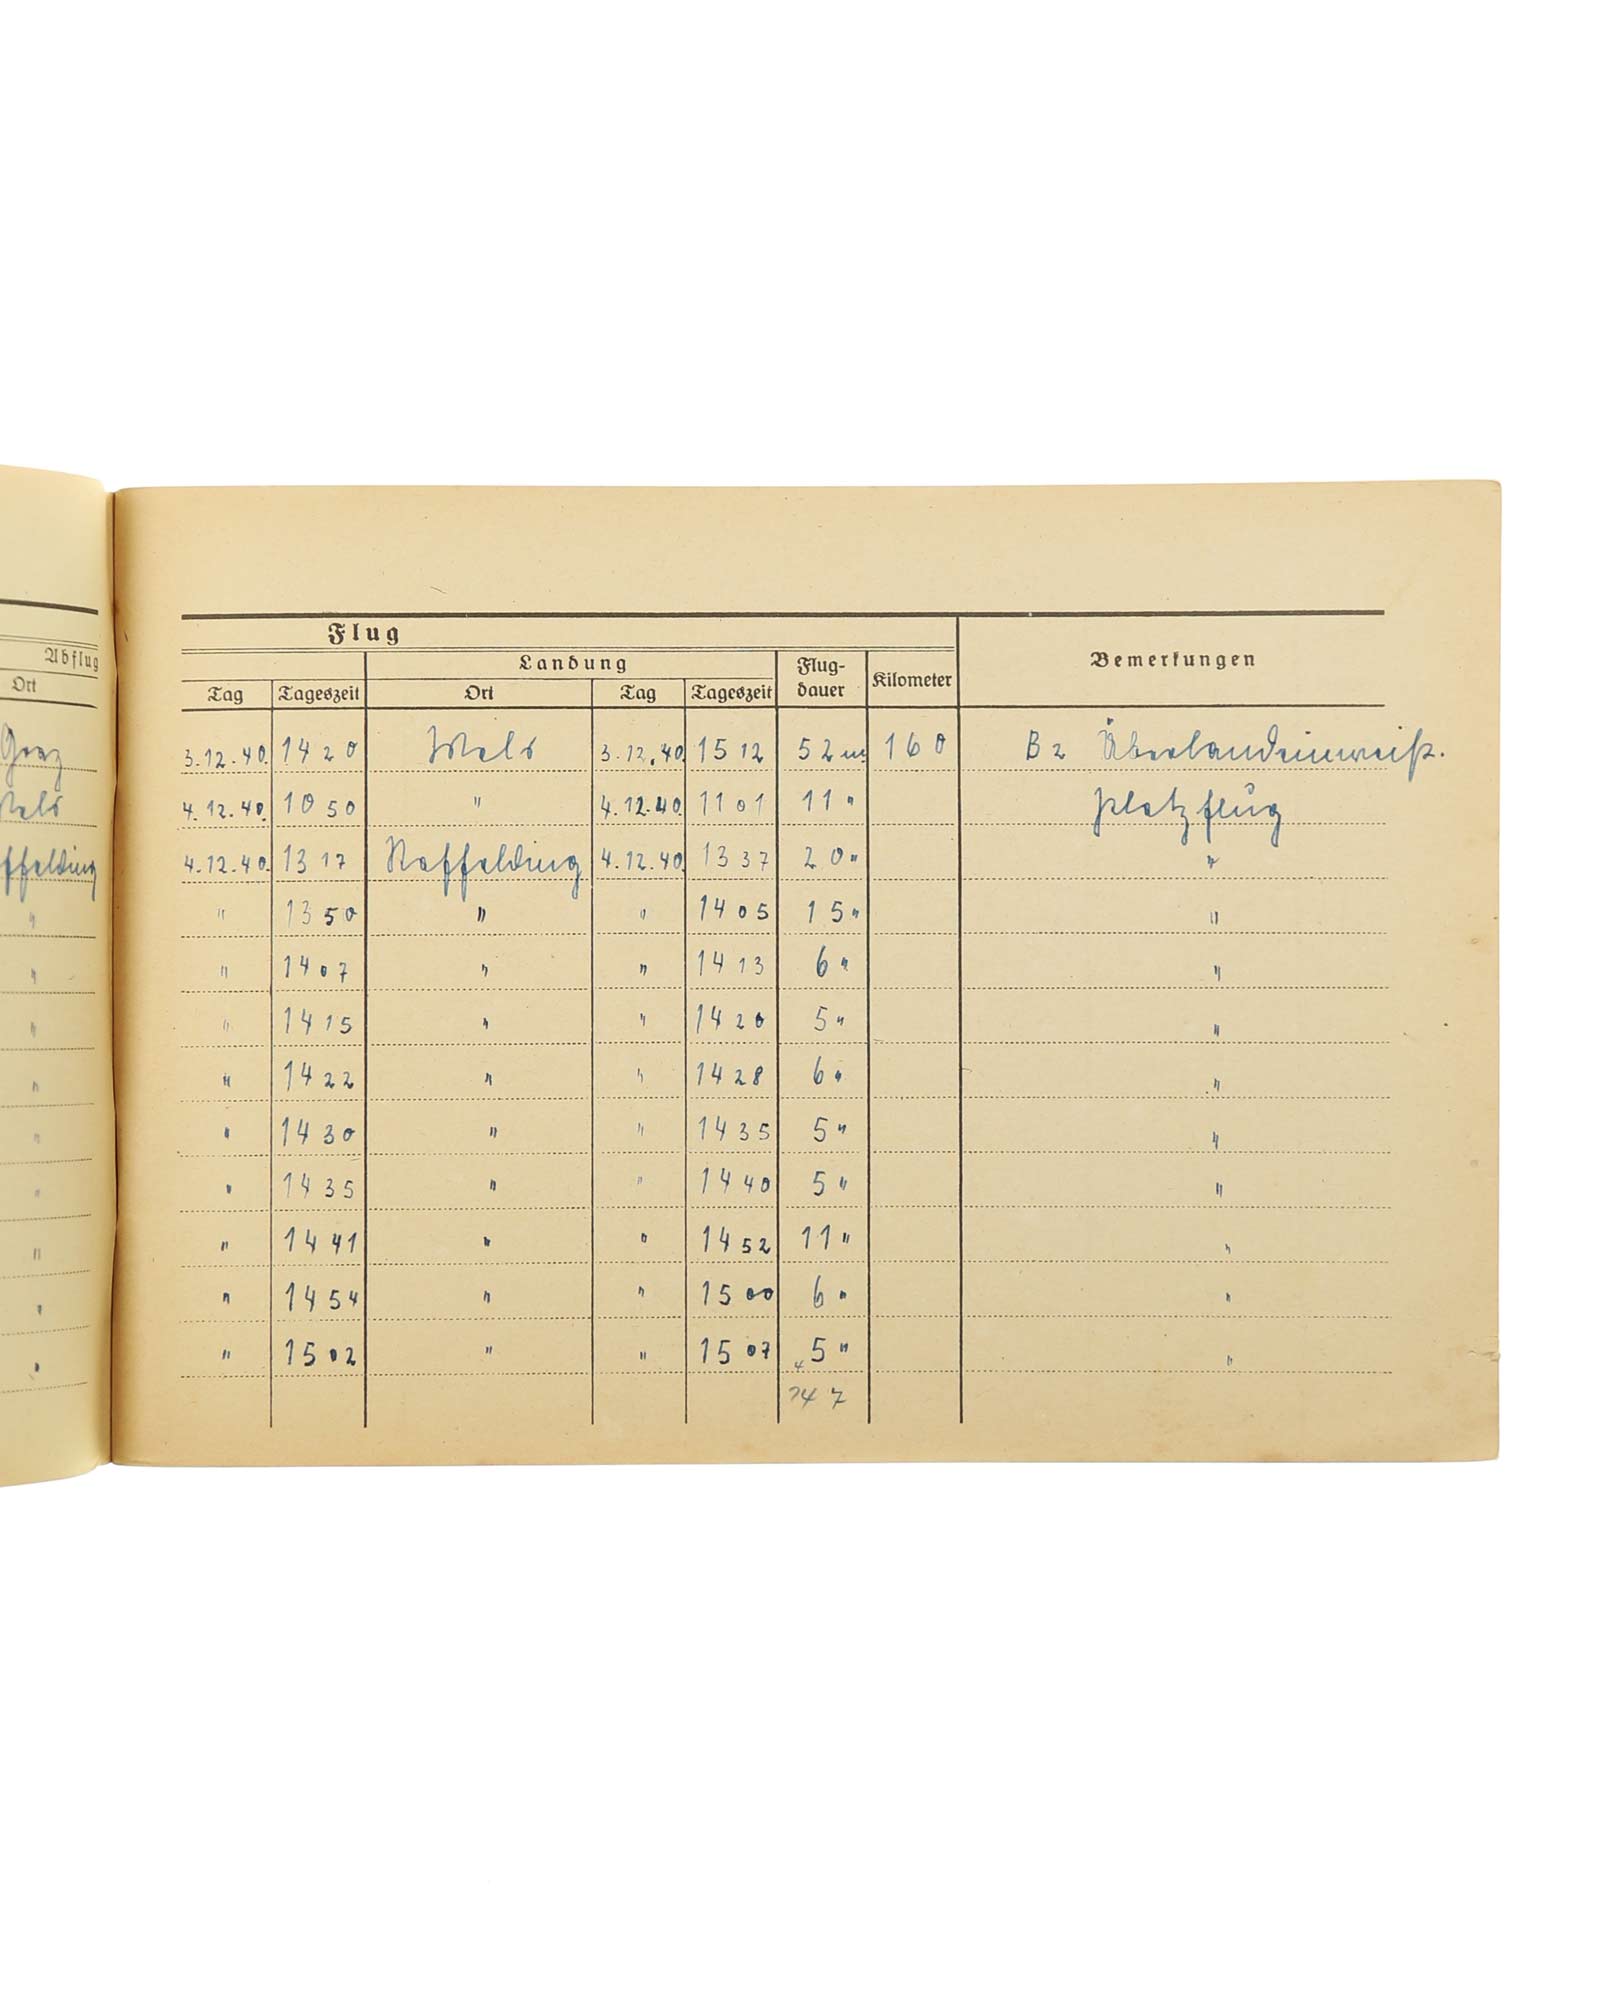 Abflug
Ort
Graz
Wels
Flug
Landung
Flug-
dauer
Kilometer
Bemerkungen
Tag Tageszeit Ort Tag Tageszeit
3.12.40. 14 20 Wels 3.12.40. 15 12 52 m 160 B2 Überlandeinweiß.
4.12.40. 10 50 " 4.12.40. 11 01 11 " Platzflug
4.12.40. 13 17 Haffelding 4.12.40. 13 37 20 " "
" 13 50 " " 14 05 15 " "
" 14 07 " " 14 13 6 " "
" 14 15 " " 14 20 5 " "
" 14 22 " " 14 28 6 " "
" 14 30 " " 14 35 5 " "
" 14 35 " " 14 40 5 " "
" 14 41 " " 14 52 11 " "
" 14 54 " " 15 00 6 " "
" 15 02 " " 15 07 5 " "